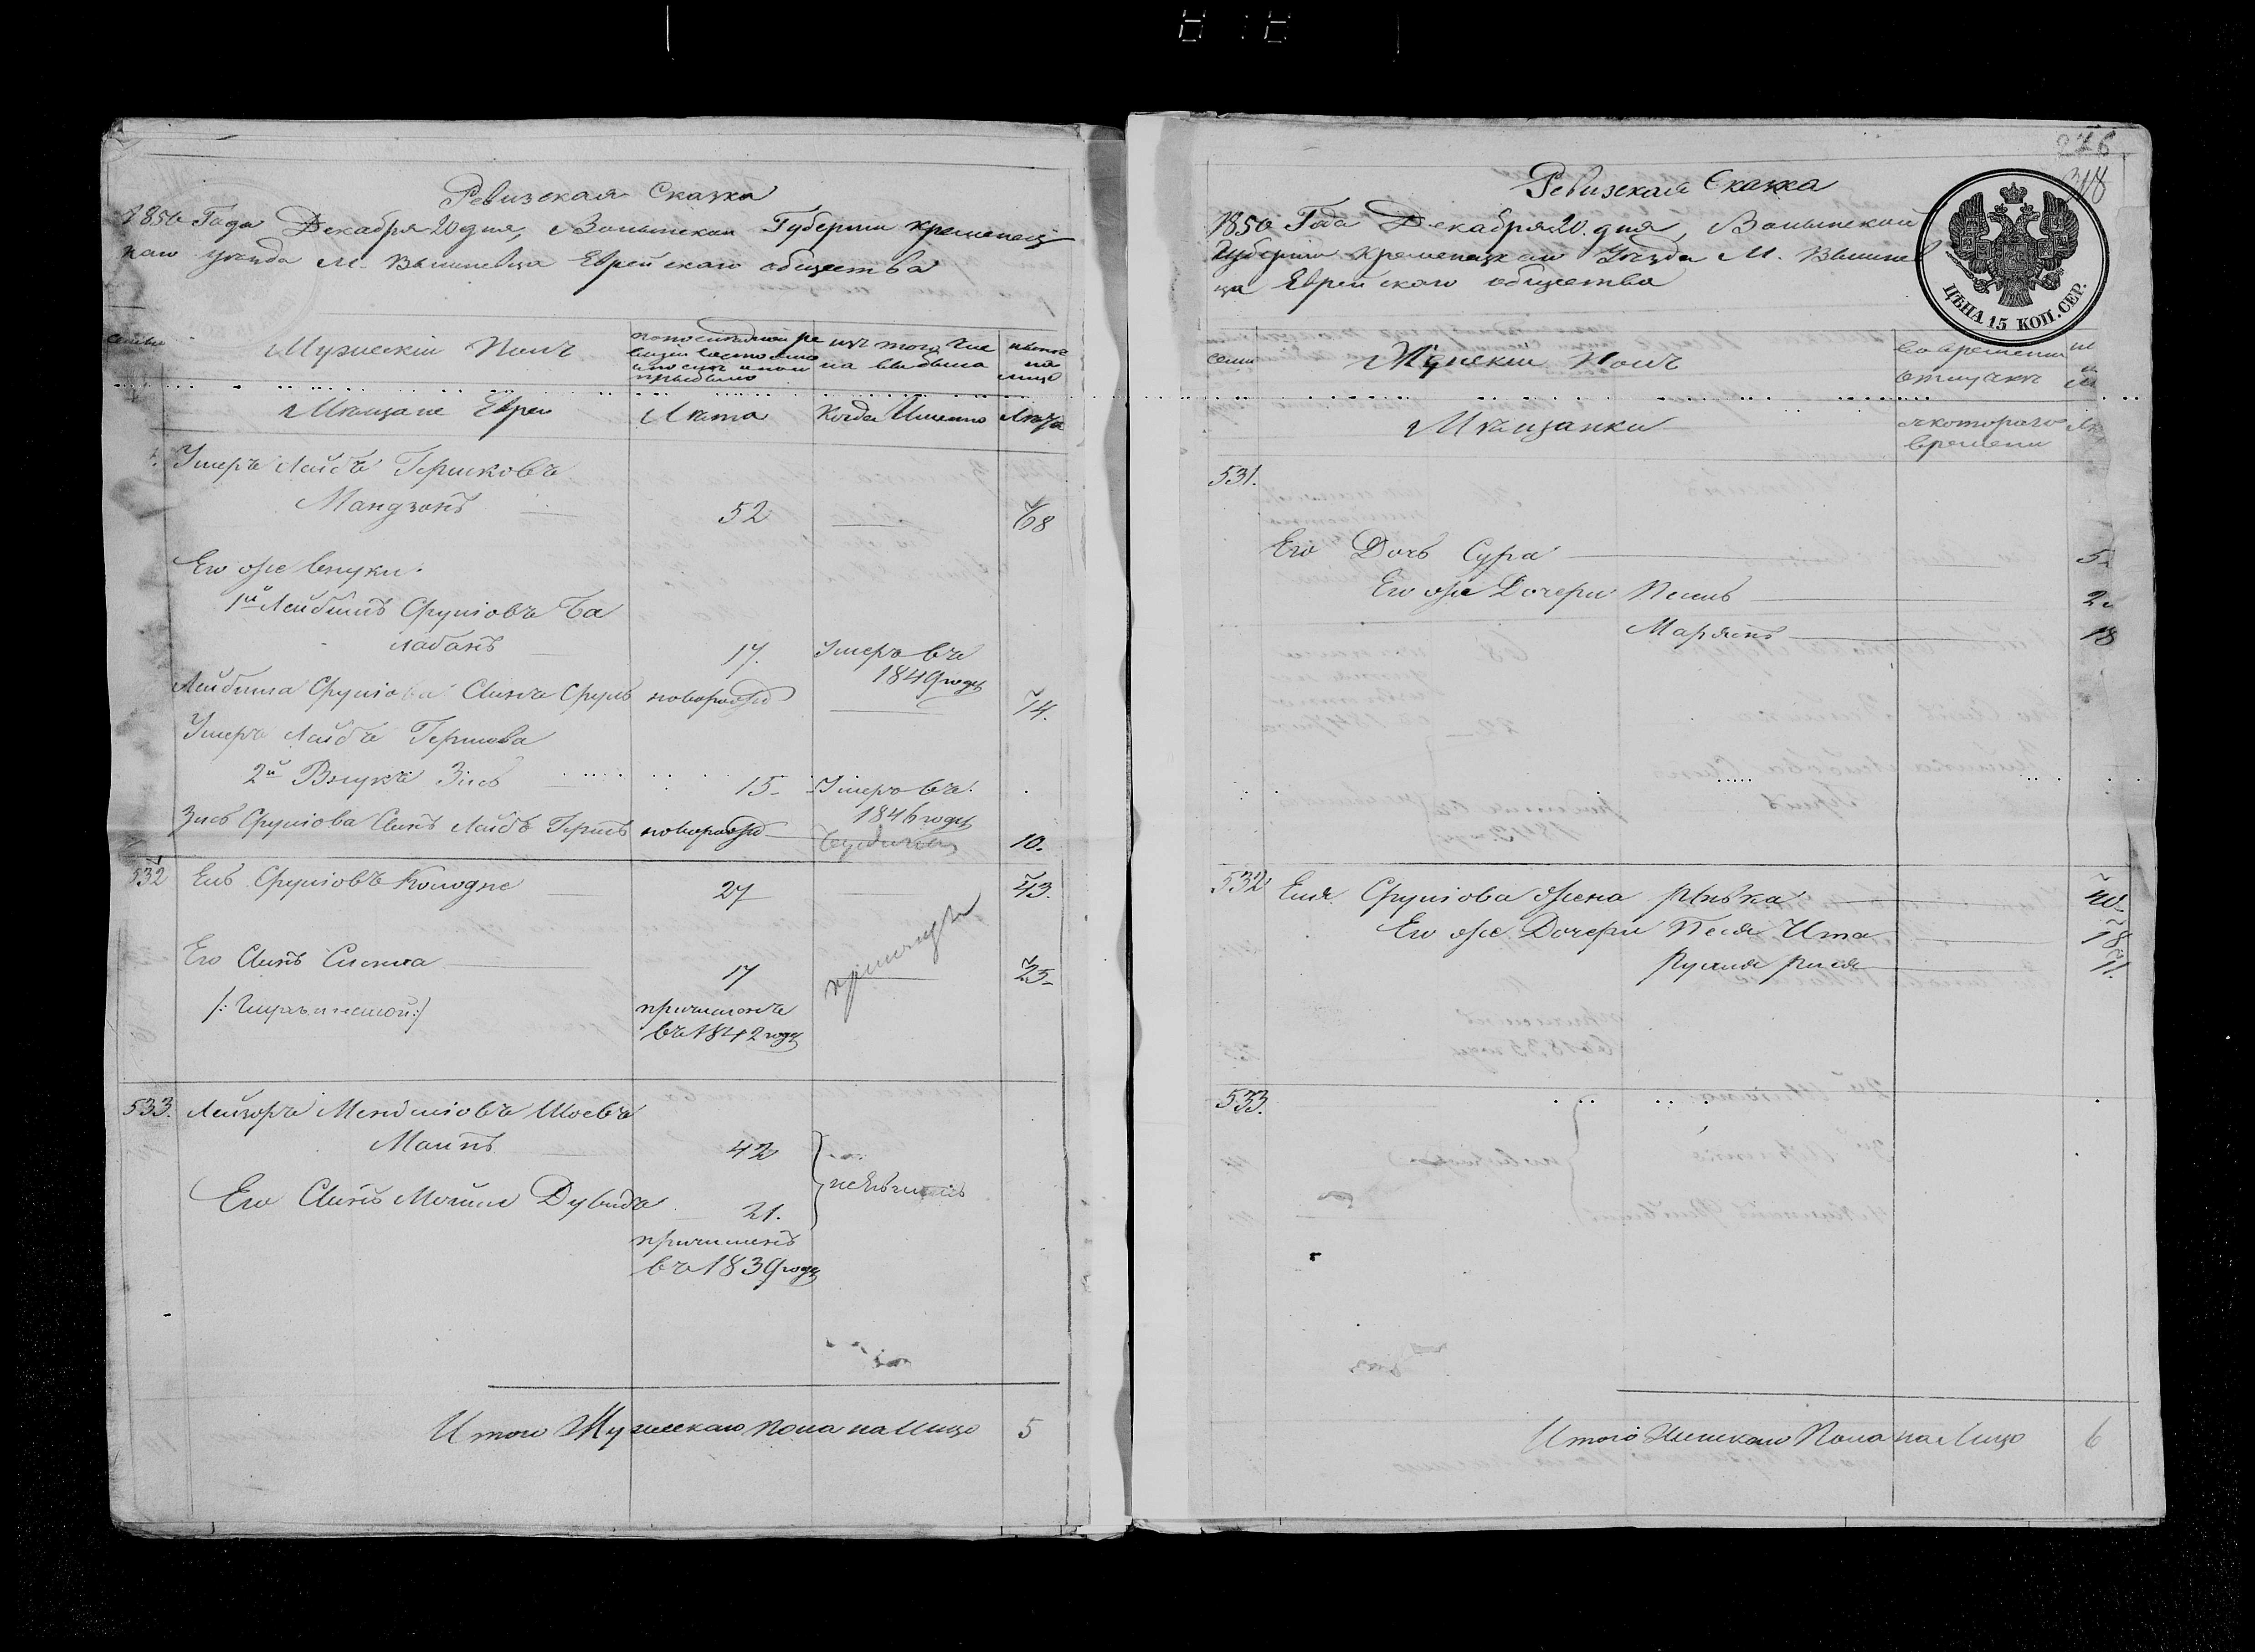 Ревизская Сказка
1850 Года Декабря 20 дня, Волынской Губернии Кременец
каго уезда М. Вышневца Еврейскаго общества
семьи
Мужескій Полъ
по последней ре
визіи состояло
и после оной
прибыло
изъ того чис
ла выбыло
ныне
на
лицо
Мещане Евреи
Лета
Когда Именно
Лета
Умеръ Лейбъ Гершковъ
Мандзонъ
52
68
Его же внуки:
1й Лейбишъ Сруліовъ Ба
лабанъ
17.
Умеръ въ
1849 году
Лейбиша Сруліова Сынъ Сруль
новорожд
14.
Умера Лейбъ Гершова
2й Внукъ Зись
15
Умеръ въ
1846 году
Зись Сруліова Сынъ Лейбъ Гершъ
новорожд
10.
532
Ель Сруліовъ Колодне
27
43.
Его Сынъ Сломка
17
25
причисленъ
въ 1842 году
533.
Лейзоръ Менделіовъ Шоевъ
Маинъ
42
Его Сынъ Мошко Дувидъ
21.
причисленъ
въ 1839 году
Итого Мужескаго Пола на Лицо
5
276
318
Ревизская Сказка
1850 Года Декабря 20. дня, Волынской
Губерніи Кременецкаго Уезда М. Вышнев
ца Еврейскаго общества
ЦѢНА 15 КОП. СЕР.
семьи
Женскій Полъ
Во временной
отлучке
Мещанки
с котораго
времени
531.
Его Дочь Сура
5
Его же Дочери Песель
2
Марьямъ
18
532
Еля Сруліова жена Ривка
40
Его же Дочери Песя Ита
18
Рухля Рися
11.
533.
Итого Женскаго Пола на Лицо
6